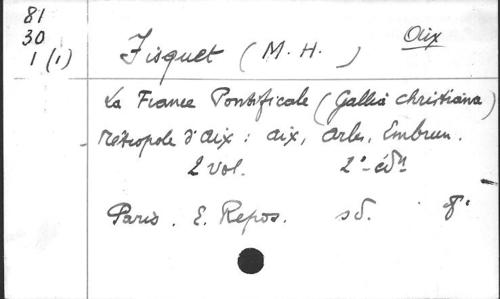 81
30
1 (1)
Fisquet (M. H. )
Aix
La France Pontificale (Gallia christiana)
Métropole d'Aix : Aix, Arles, Embrun.
2 vol. 2° édn
Paris. E. Repos. sd. 8°